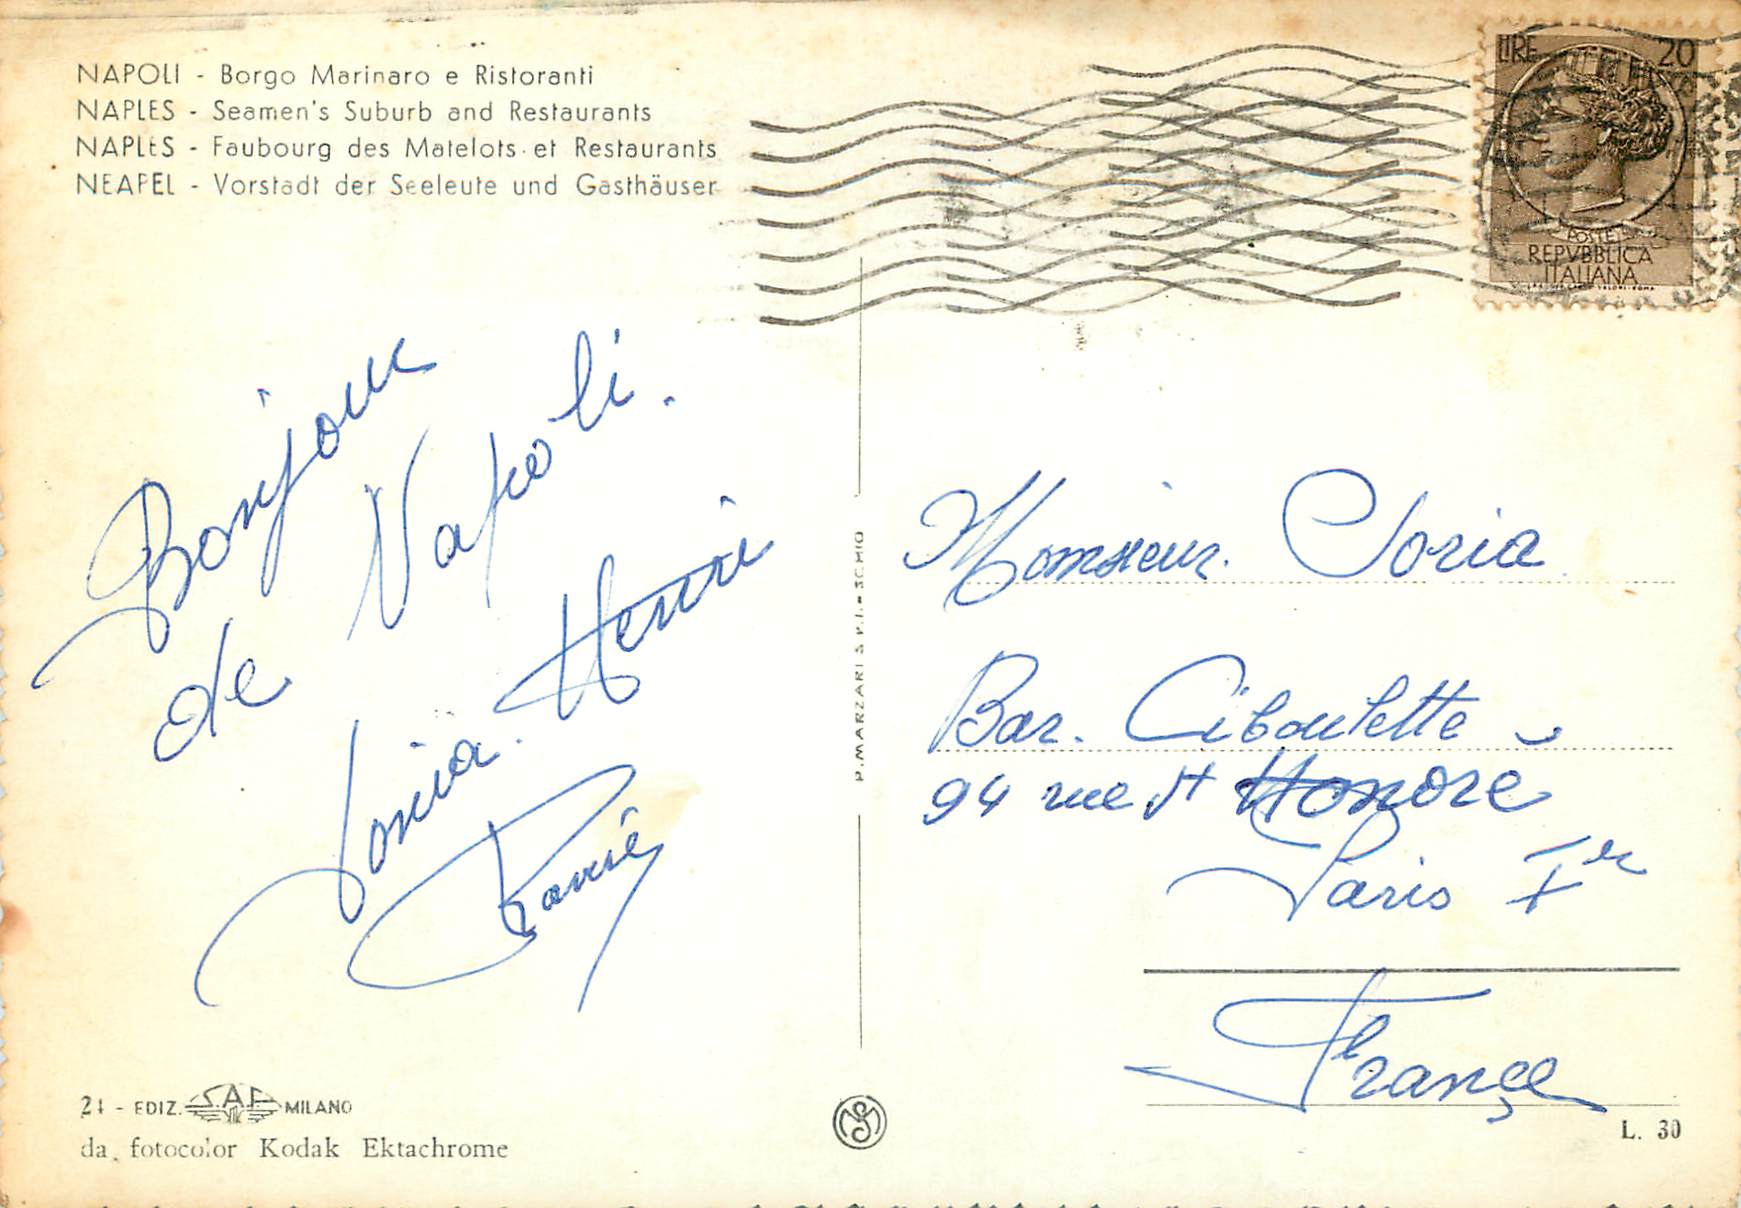 NAPOLI - Borgo Marinaro e Ristoranti
NAPLES - Seamen's Suburb and Restaurants
NAPLES - Faubourg des Matelots et Restaurants
NEAPEL - Vorstadt der Seeleute und Gasthäuser
LIRE 20
POSTE
REPVBBLICA
ITALIANA
Bonjour
de Napoli.
Sonia. Henri
P. MARZARI S.R.L. - SCHIO
Monsieur. Soria
Bar. Ciboulette
94 rue St Honore
Paris Ier
France
21 - EDIZ. S.A.F. MILANO
da fotocolor Kodak Ektachrome
L. 30